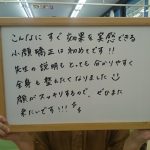 こんなにすぐ効果を実感できる
小顔矯正は初めてです!!
先生の説明もとっても分かりやすく
全身も整えたくなりました
顔がスッキリするので、ぜひまた
来たいです!!!